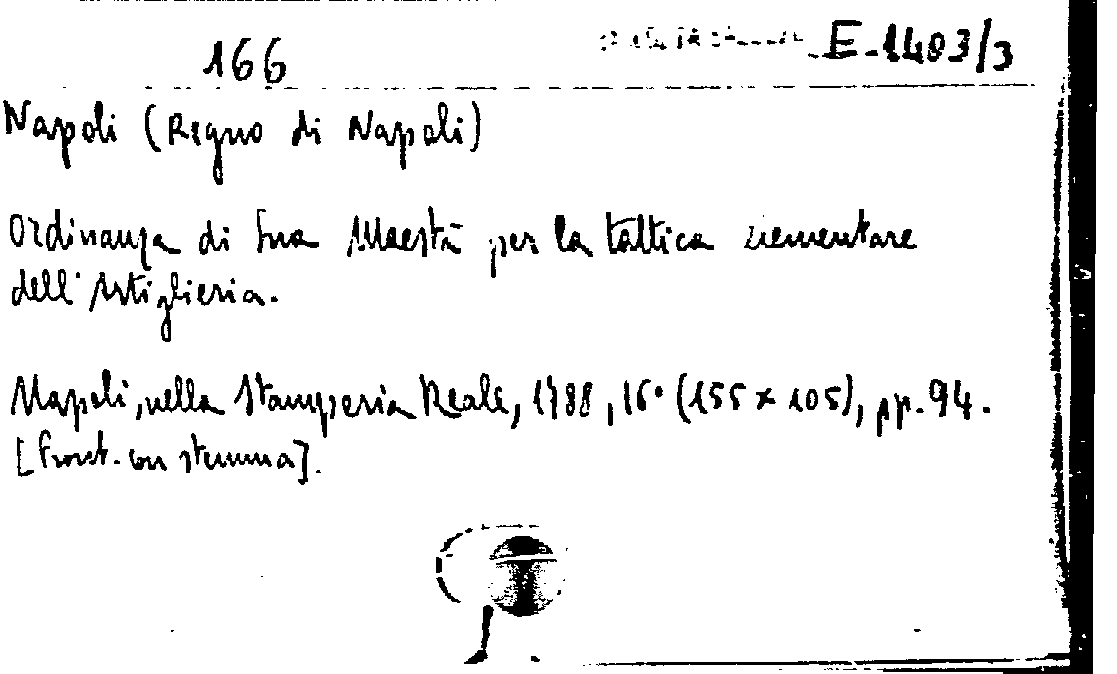 166 E-1403/3
Napoli (Regno di Napoli)
Ordinanza di Sua Maestà per la tattica elementare
dell'Artiglieria.
Napoli, nella Stamperia Reale, 1788, 16° (155 x 105), pp. 94.
[Front. con stemma].